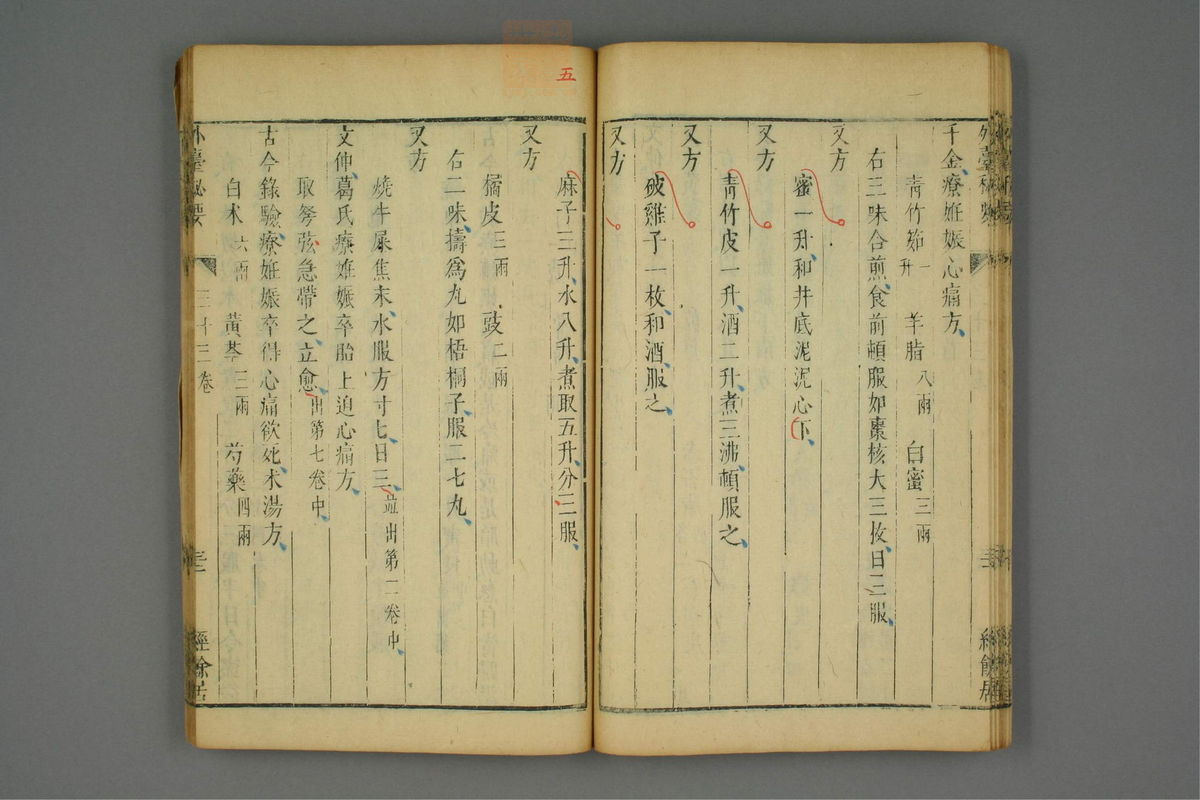 千金療妊娠心痛方
青竹筎一升 羊脂八兩 白蜜三兩
右三味合煎食前頓服如棗核大三枚日三服
又方
蜜一升和井底泥泥心下
又方
青竹皮一升酒二升煮三沸頓服之
又方
破雞子一枚和酒服之
又方
五
麻子三升水八升煮取五升分三服
又方
橘皮三兩 豉二兩
右二味擣爲丸如梧桐子服二七丸
又方
燒牛屎焦末水服方寸七日三並出第二卷中
文仲葛氏療妊娠卒胎上迫心痛方
取弩弦急帶之立愈出第七卷中
古今錄驗療妊娠卒得心痛欲死术湯方
白术六兩 黃芩三兩 芍藥四兩
外臺秘要 三十三卷 經餘居